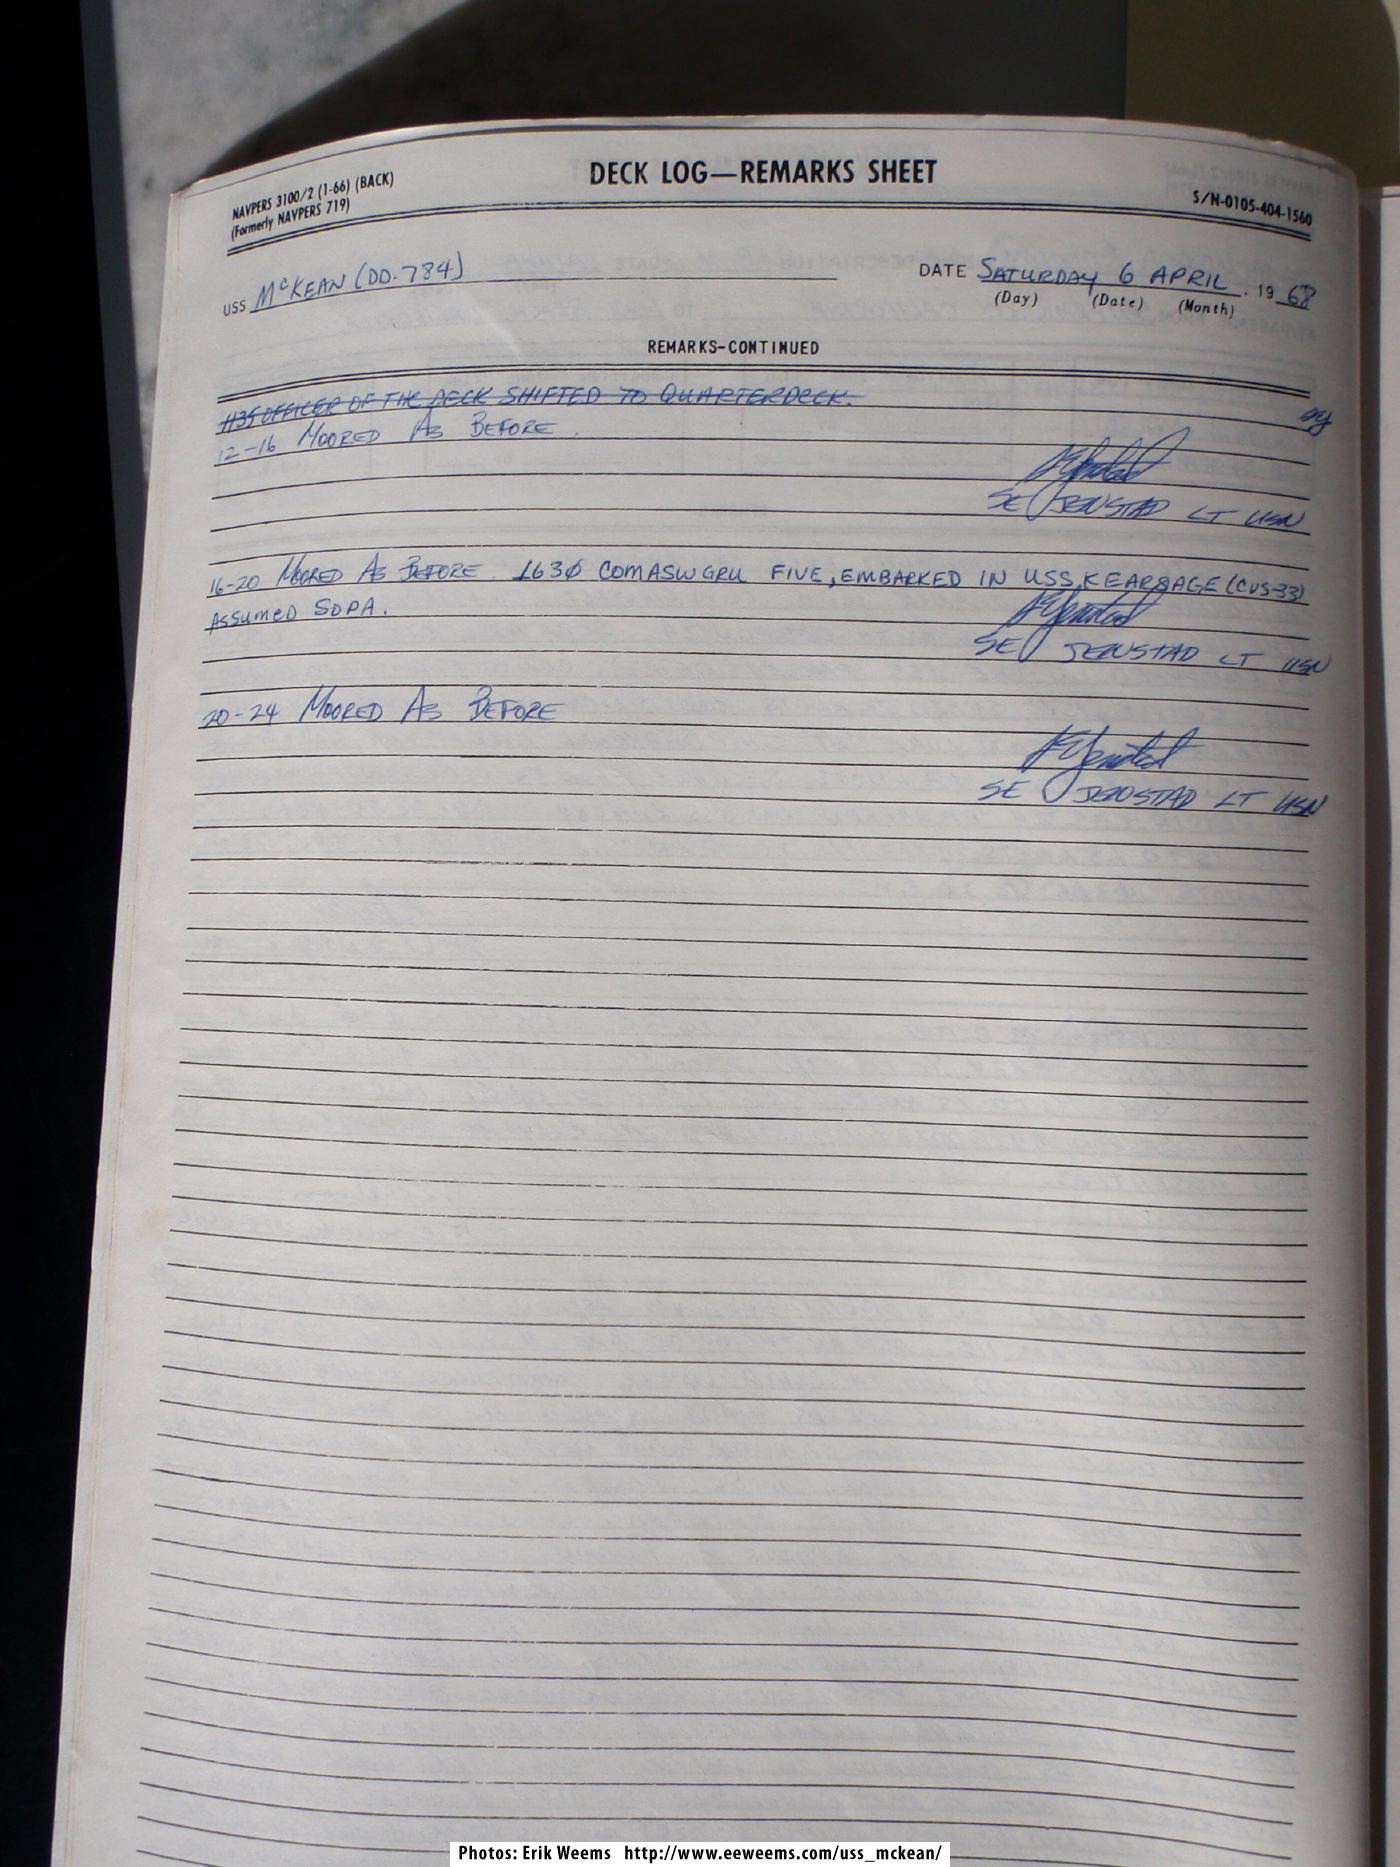 NAVPERS 3100/2 (1-66) (BACK)
(Formerly NAVPERS 719)
DECK LOG—REMARKS SHEET
S/N-0105-404-1560
USS McKEAN (DD-784)
DATE SATURDAY 6 APRIL, 19 68
(Day) (Date) (Month)
REMARKS-CONTINUED
1135 OFFICER OF THE DECK SHIFTED TO QUARTERDECK.
12-16 MOORED AS BEFORE.
SE JENSTAD LT USN
16-20 MOORED AS BEFORE. 163Ø COMASWGRU FIVE, EMBARKED IN USS KEARSAGE (CVS-33)
ASSUMED SOPA.
SE JENSTAD LT USN
20-24 MOORED AS BEFORE
SE JENSTAD LT USN
Photos: Erik Weems http://www.eeweems.com/uss_mckean/